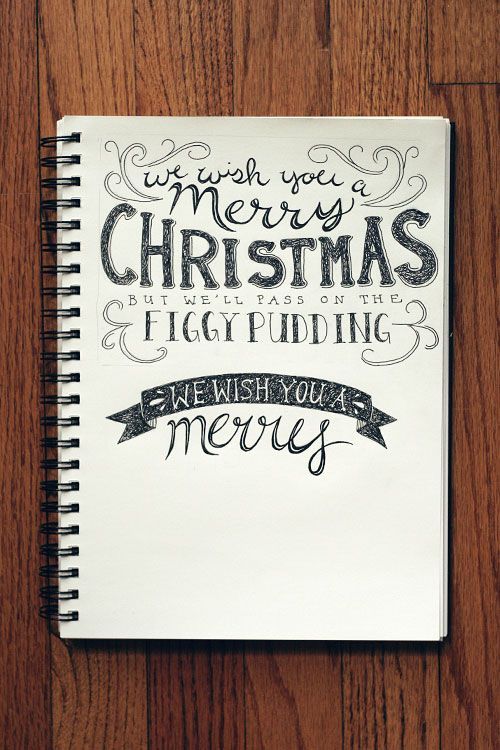 we wish you a
merry
CHRISTMAS
BUT WE'LL PASS ON THE
FIGGY PUDDING
WE WISH YOU A
merry